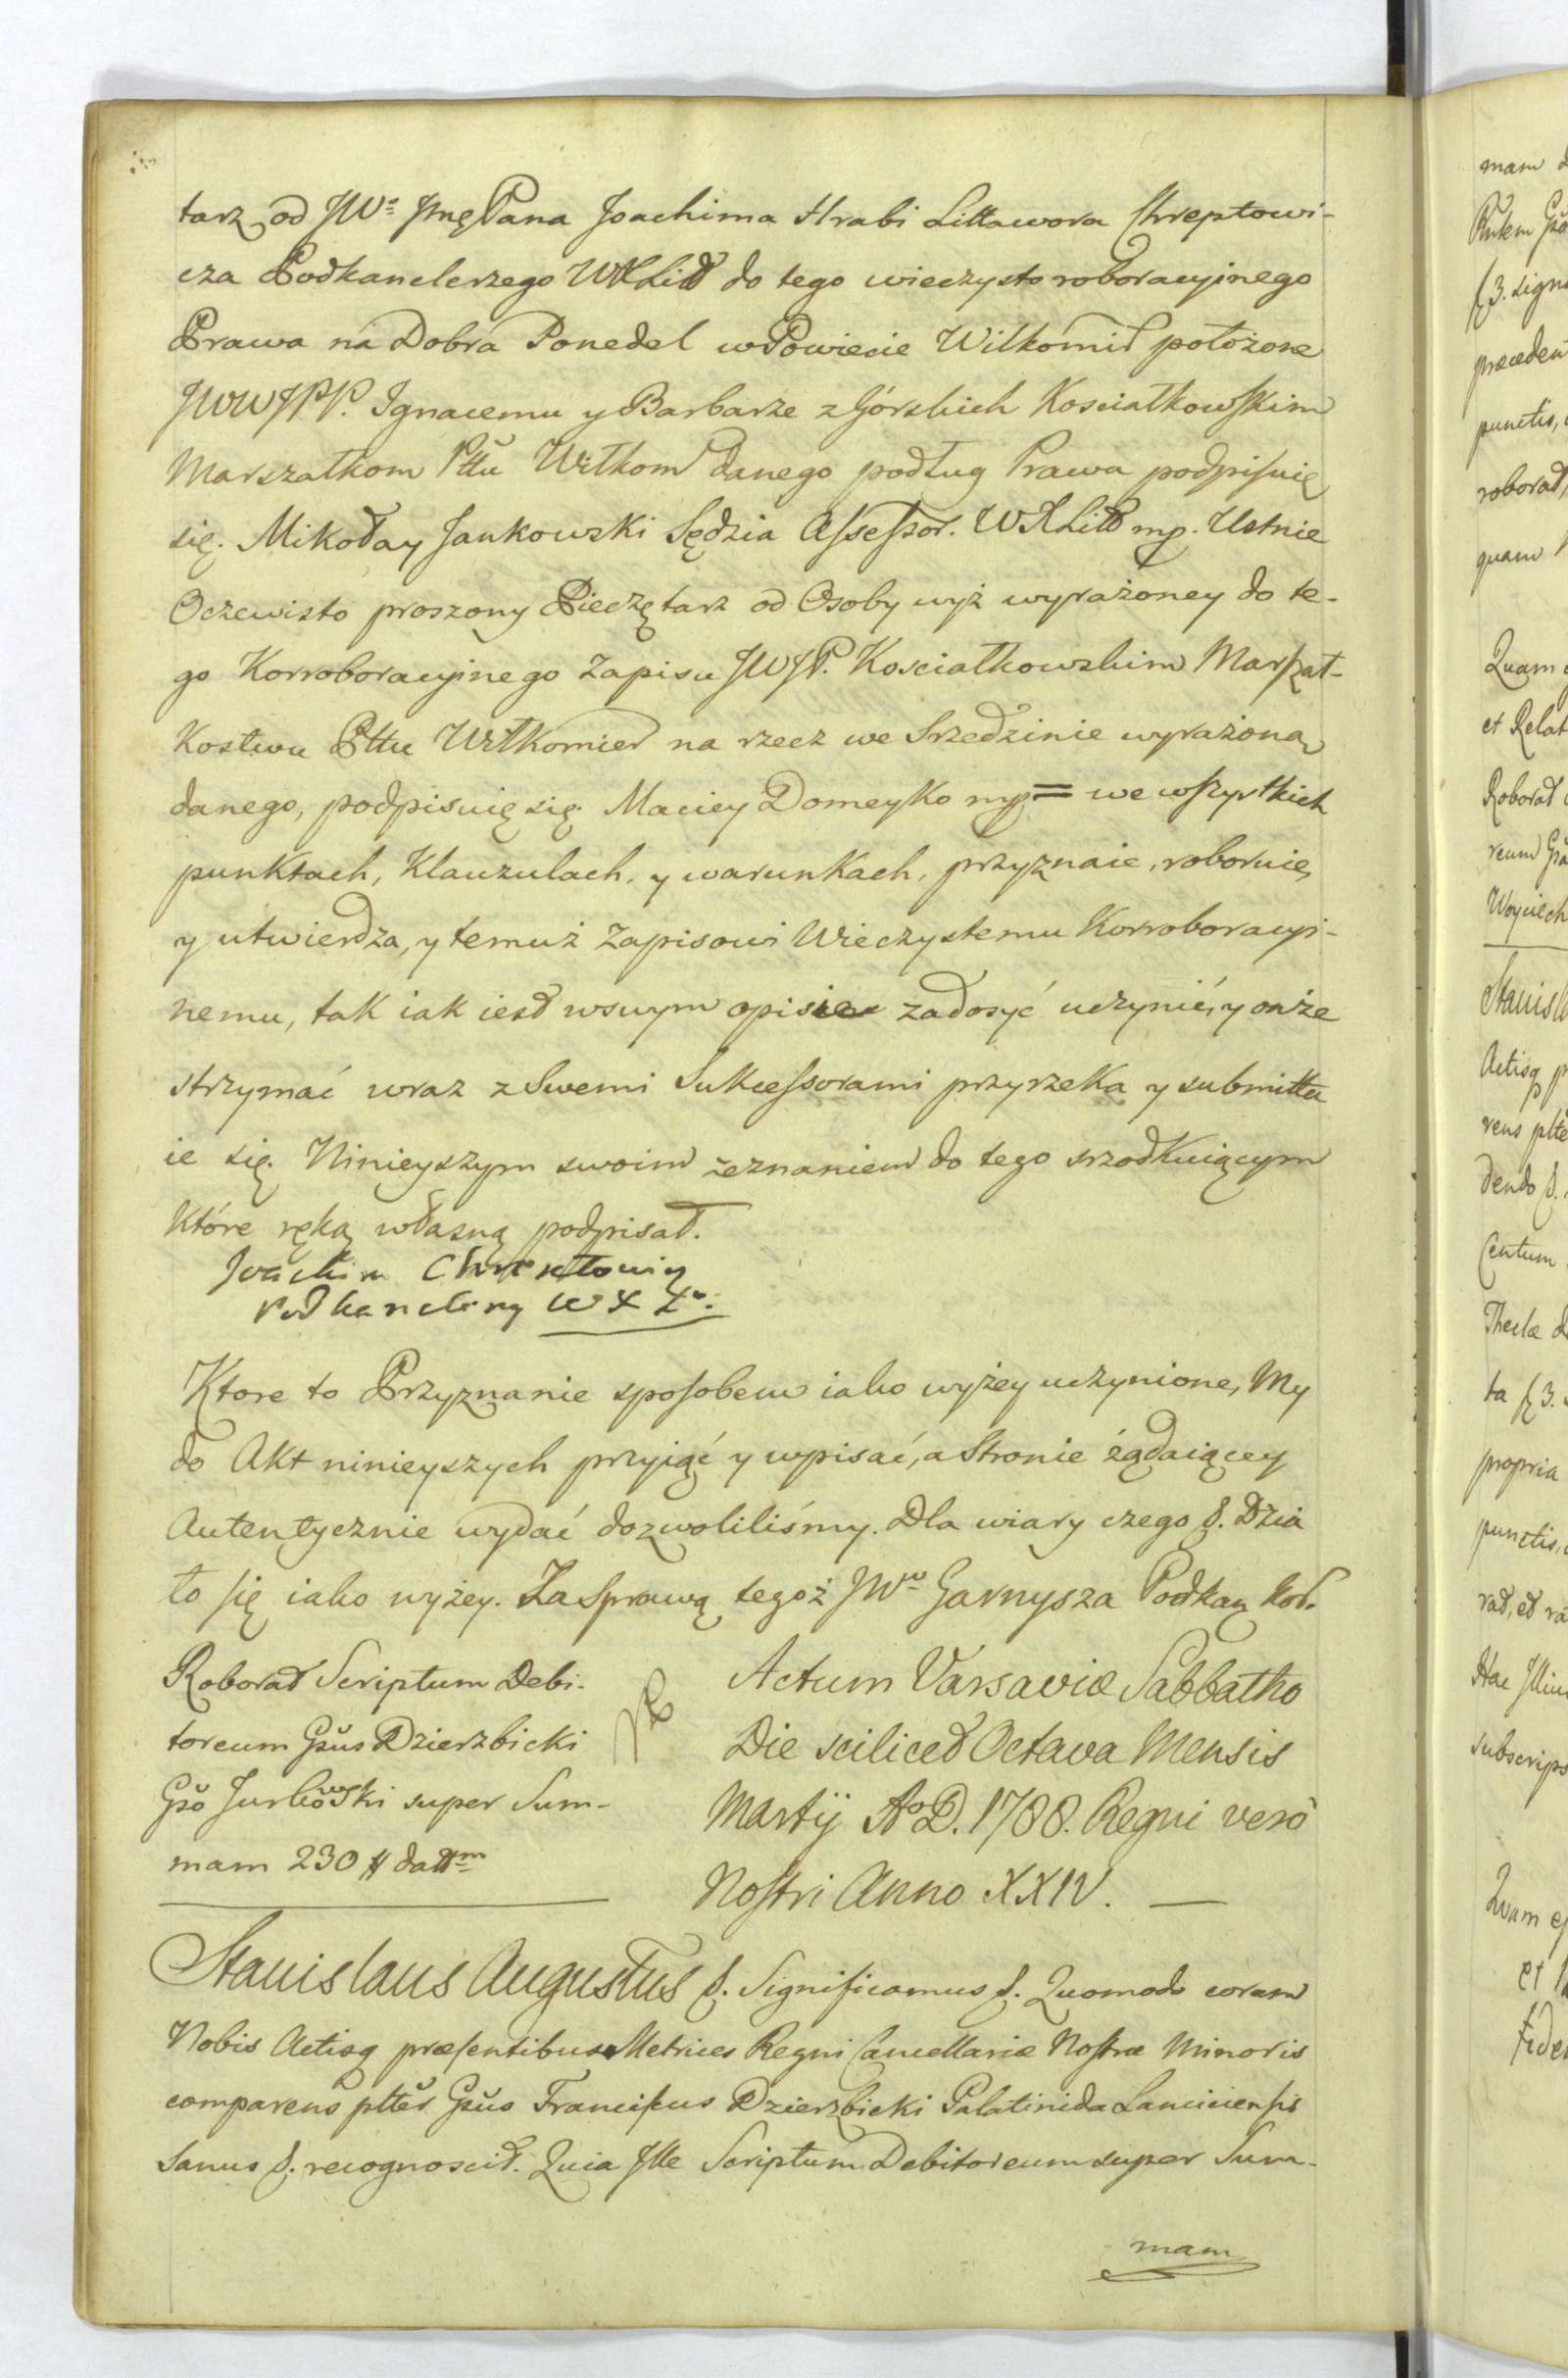 tarz od JWo Jmę Pana Joachima Hrabi Littawora Chreptowi-
cza Podkanclerzego WXLitt do tego wieczysto roboracyinego
Prawa na Dobra Ponedel w Powiecie Wiłkomir położone
JWWJPP. Ignacemu y Barbarze z Górskich Kosciałkowskim
Marszałkom Pttu Wiłkom danego podług Prawa podpisuię
się. Mikołay Jankowski Sędzia Assessor. WXLitt mp. Ustnie
Oczewisto proszony Pieczętarz od Osoby wyż wyrażoney do te-
go Korroboracyinego Zapisu JWJP. Kosciałkowskim Marszał-
kostwu Pttu Wiłkomier na rzecz we Srzedzinie wyrażoną
danego, podpisuię się. Maciey Domeyko mp = we wszystkich
punktach, Klauzulach, y warunkach, przyznaie, roboruie,
y utwierdza, y temuż Zapisowi Wieczystemu Korroboracyi-
nemu, tak iak iest w swym opisie zadosyć uczynić, y onże
strzymać wraz z Swemi Sukcessorami przyrzeka y submittu
ie się. Ninieyszym swoim zeznaniem do tego srzodkuiącym
Które ręką własną podpisał.
Joachim Chreptowicz
Podkanclerzy W X L:
Ktore to Przyznanie sposobem iako wyżey uczynione, My
do Akt ninieyszych przyiąć y wpisać, a Stronie żądaiącey
Autentycznie wydać dozwoliliśmy. Dla wiary czego &. Dzia
ło się iako wyżey. Za Sprawą tegoż JWo Garnysza Podkan Kor.
Roborat Scriptum Debi-
toreum Gsus Dzierzbicki
Gso Jurkowski super Sum-
mam 230 # dattm
Actum Varsaviæ Sabbatho
Die scilicet Octava Mensis
Martij Ao D. 1788. Regni verò
Nostri Anno XXIV. —
Stanislaus Augustus &. Significamus &. Quomodo coram
Nobis Actisq præsentibus Metrices Regni Cancellariæ Nostræ Minoris
comparens plter Gsus Franciscus Dzierzbicki Palatinida Lanciciensis
Sanus &. recognoscit. Quia Ille Scriptum Debitoreum super Sum-
mam